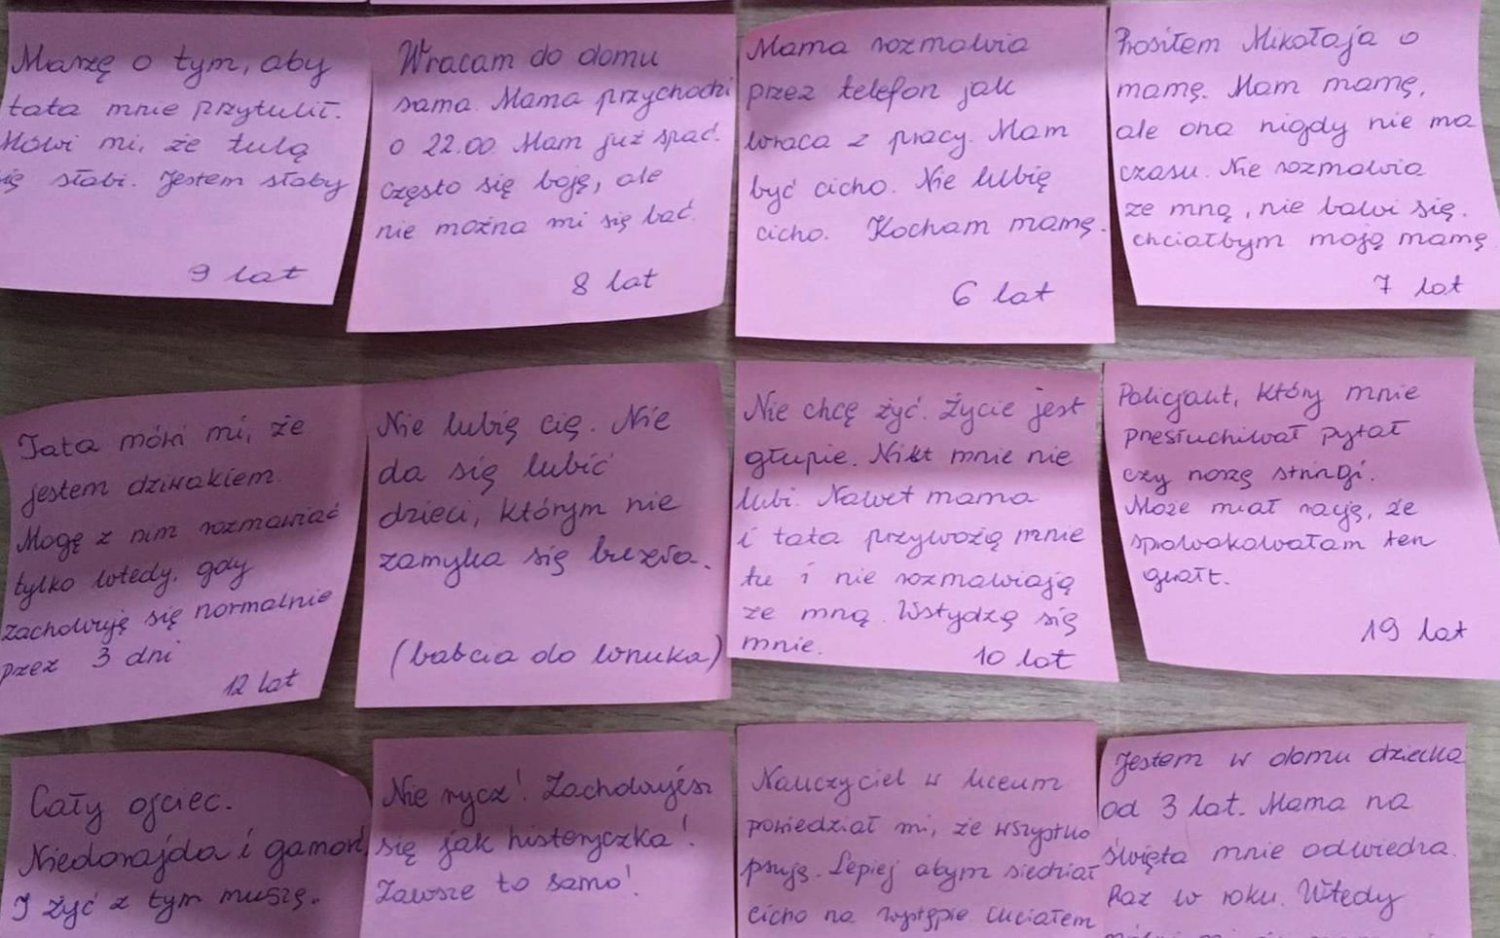 Marzę o tym, aby
tata mnie przytulił.
Mówi mi, że tulą
się słabi. Jestem słaby
9 lat
Wracam do domu
sama. Mama przychodzi
o 22.00. Mam już spać.
Często się boję, ale
nie można mi się bać.
8 lat
Mama rozmawia
przez telefon jak
wraca z pracy. Mam
być cicho. Nie lubię
cicho. Kocham mamę.
6 lat
Prosiłem Mikołaja o
mamę. Mam mamę,
ale ona nigdy nie ma
czasu. Nie rozmawia
ze mną, nie bawi się.
chciałbym moją mamę
7 lat
Tata mówi mi, że
jestem dziwakiem.
Mogę z nim rozmawiać
tylko wtedy, gdy
zachowuję się normalnie
przez 3 dni
12 lat
Nie lubię cię. Nie
da się lubić
dzieci, którym nie
zamyka się buzia.
(babcia do wnuka)
Nie chcę żyć. Życie jest
głupie. Nikt mnie nie
lubi. Nawet mama
i tata przywożą mnie
tu i nie rozmawiają
ze mną. Wstydzą się
mnie.
10 lat
Policjant, który mnie
przesłuchiwał pytał
czy noszę stringi.
Może miał rację, że
spowokowałam ten
gwałt.
19 lat
Cały ojciec.
Niedorajda i gamoń.
I żyć z tym muszę.
Nie rycz! Zachowujesz
się jak histeryczka!
Zawsze to samo!
Nauczyciel w liceum
powiedział mi, że wszystko
psuję. Lepiej abym siedział
cicho na występie. Chciałem
Jestem w domu dziecka
od 3 lat. Mama na
święta mnie odwiedza.
Raz w roku. Wtedy